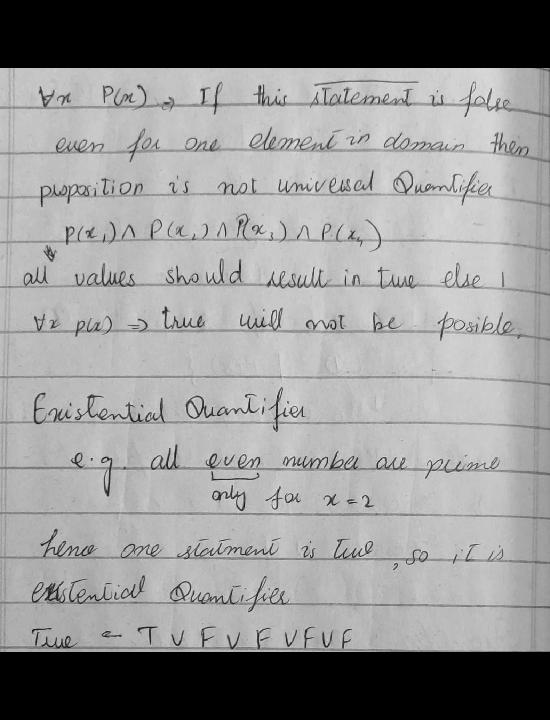 ∀x P(x) → If this statement is false
even for one element in domain then
proposition is not universal Quantifier
P(x₁) ∧ P(x₂) ∧ P(x₃) ∧ P(x₄)
all values should result in true else
∀x p(x) → true will not be posible.
Existential Quantifier
e.g. all even number are prime
only for x = 2
hence one statment is true, so it is
existential Quantifier
True ← T ∨ F ∨ F ∨ F ∨ F